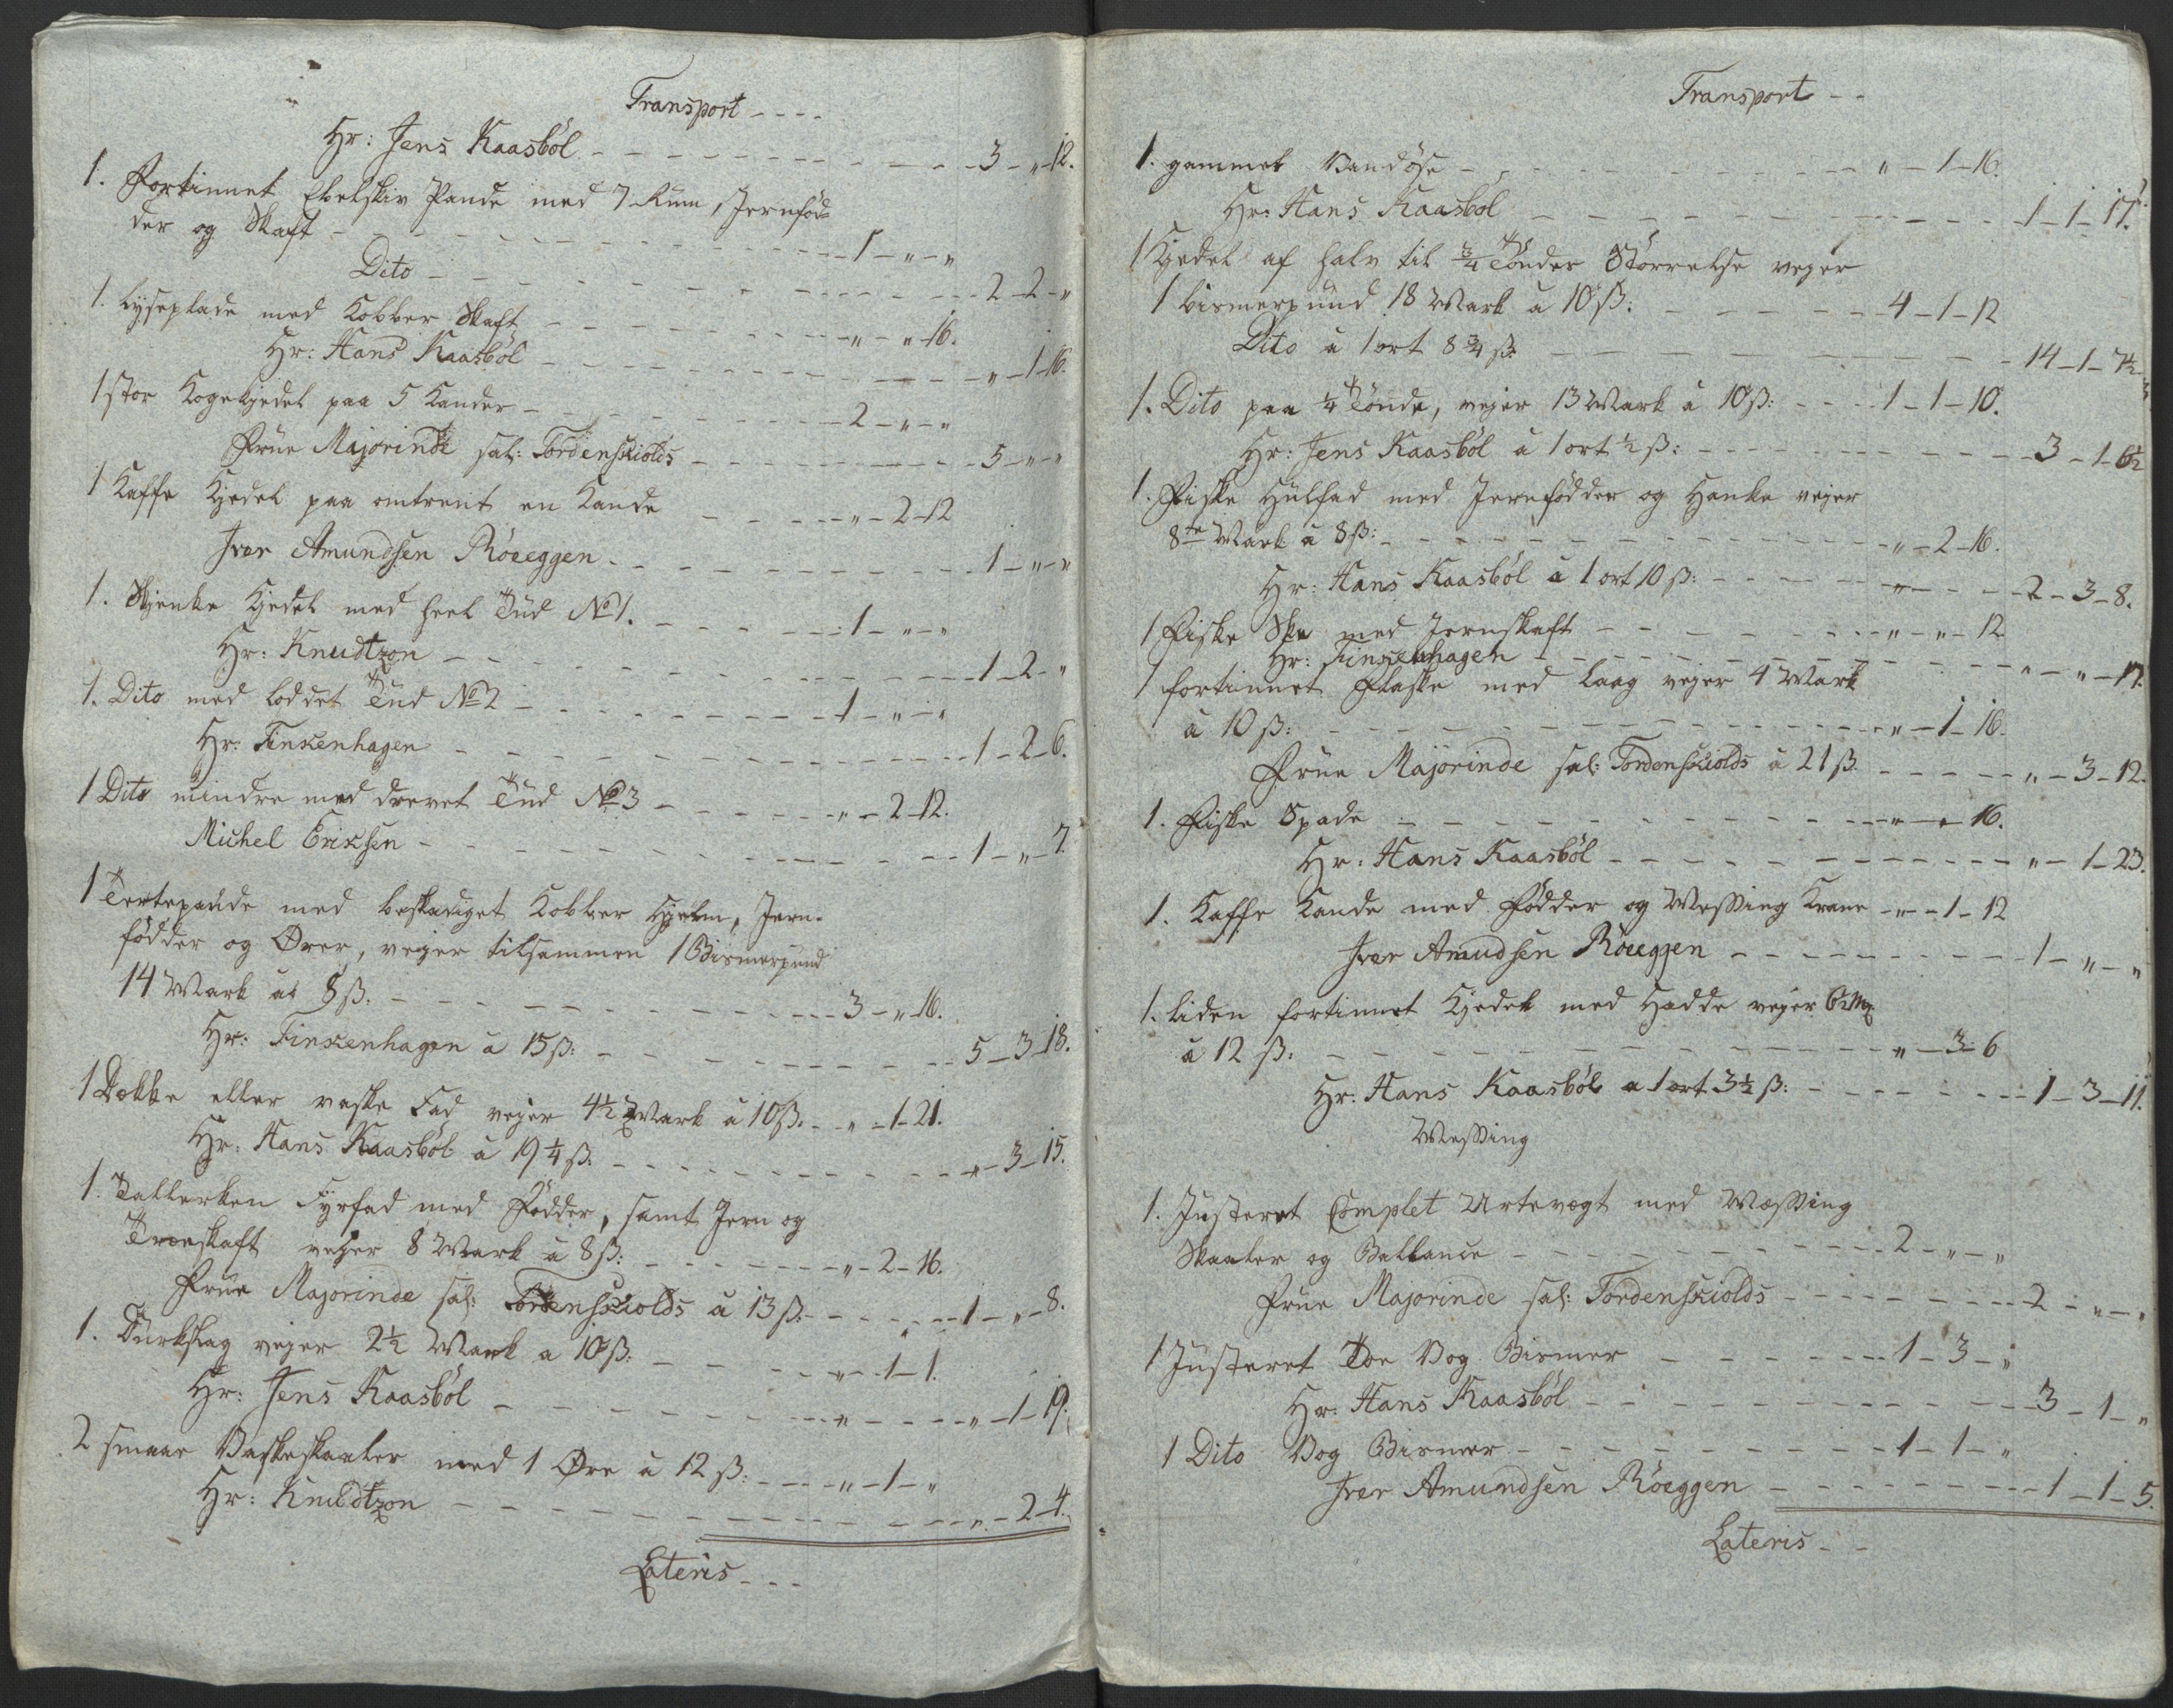 Transport - - - -
Hr: Jens Kaasböl - - - 3 - " - 12.
1. Fortinnet Ebelskiv Pande med 7 Rum, Jernföd=
der og Skaft - - - 1 - " - "
Dito - - - 2 - 2 - "
1. Lyseplade med Kobber Skaft - - - " - " 16.
Hr: Hans Kaasböl - - - " - 1 - 16.
1 stor Kogekjedel paa 5 Kander - - - 2 - " - "
Frue Majorinde sal: Tordenskiolds - - - 5 - " - "
1 Kaffe Kjedel paa omtrent en Kande - - - " - 2 - 12
Iver Amundsen Röeeggen - - - 1 - " - "
1. Skjenke Kjedel med heel Tud No 1. - - - 1 - " - "
Hr: Knudtzon - - - 1 - 2 - "
1. Dito med loddet Tud No 2 - - - 1 - " - "
Hr: Finkenhagen - - - 1 - 2 - 6.
1 Dito mindre med drevet Tud No 3 - - - " - 2 - 12.
Michel Eriksen - - - 1 - " - 7.
1 Tertepande med beskadiget Kobber Hjelm, Jern-
födder og Ører, vejer tilsammen 1 Bismerpund
14 Mark á 8 ß. - - - 3 - " 16.
Hr: Finkenhagen a 15 ß: - - - 5 - 3 - 18.
1 Dække eller vaske Fad vejer 4½ Mark á 10 ß. - - " - 1 - 21.
Hr: Hans Kaasböl á 19 ¼ ß. - - - " - 3 - 15.
1. Tallerken Fyrfad med Födder, samt Jern og
Træskaft vejer 8 Mark á 8 ß: - - - " - 2 - 16.
Frue Majorinde sal: Tordenskiolds á 13 ß. - - - 1 - " - 8.
1. Durkslag vejer 2½ Mark a 10 ß: - - - " - 1 - 1.
Hr: Jens Kaasböl - - - " - 1 - 19.
2 smaae Vaskeskaaler med 1 Øre á 12 ß: - - - " - 1 - "
Hr: Knudtzon - - - " - 2 - 4.
Lateris - - -
Transport - -
1. gammel Vandöse - - - " - 1 - 16.
Hr: Hans Kaasböl - - - 1 - 1 - 17.
1 Kjedel af halv til ¾ Tönder Störrelse vejer
1 bismerpund 18 Mark á 10 ß: - - - 4 - 1 - 12
Dito á 1 ort 8 ¾ ß: - - - 14 - 1 - 7½
1. Dito paa ¼ Tönde, vejer 13 Mark á 10 ß: - - - 1 - 1 - 10.
Hr: Jens Kaasböl á 1 ort ½ ß: - - - 3 - 1 - 6½
1. Fiske Hulfad med Jernfödder og Hanke vejer
8te Mark á 8 ß: - - - " - 2 - 16.
Hr: Hans Kaasböl á 1 ort 10 ß: - - - 2 - 3 - 8.
1 Fiske Skee med Jernskaft - - - " - " - 12
Hr: Finkenhagen - - - " - " - 17.
1 fortinnet Flaske med Laag vejer 4 Mark
á 10 ß: - - - " - 1 - 16.
Frue Majorinde sal: Tordenskiolds á 21 ß. - - - " - 3 - 12.
1. Fiske Spade - - - " - " - 16.
Hr: Hans Kaasböl - - - " - 1 - 23.
1. Kaffe Kande med Födder og Messing Krane - " - 1 - 12
Iver Amudsen Röeeggen - - - 1 - " - "
1. liden fortinnet Kjedel med Hadde vejer
á 12 ß: - - - " - 3 - 6
Hr: Hans Kaasböl a 1 ort 3½ ß: - - - 1 - 3 - 11.
Messing
1. Justeret Complet Urtevægt med Messing
Skaaler og Ballance - - - 2 - " - "
Frue Majorinde sal: Tordenskiolds - - - 2 - " - "
1 Justeret Toe Vog Bismer - - - 1 - 3 - "
Hr: Hans Kaasböl - - - 3 - 1 - "
1 Dito Vog Bismer - - - 1 - 1 - "
Iver Amundsen Röeggen - - - 1 - 1 - 5.
Lateris - -